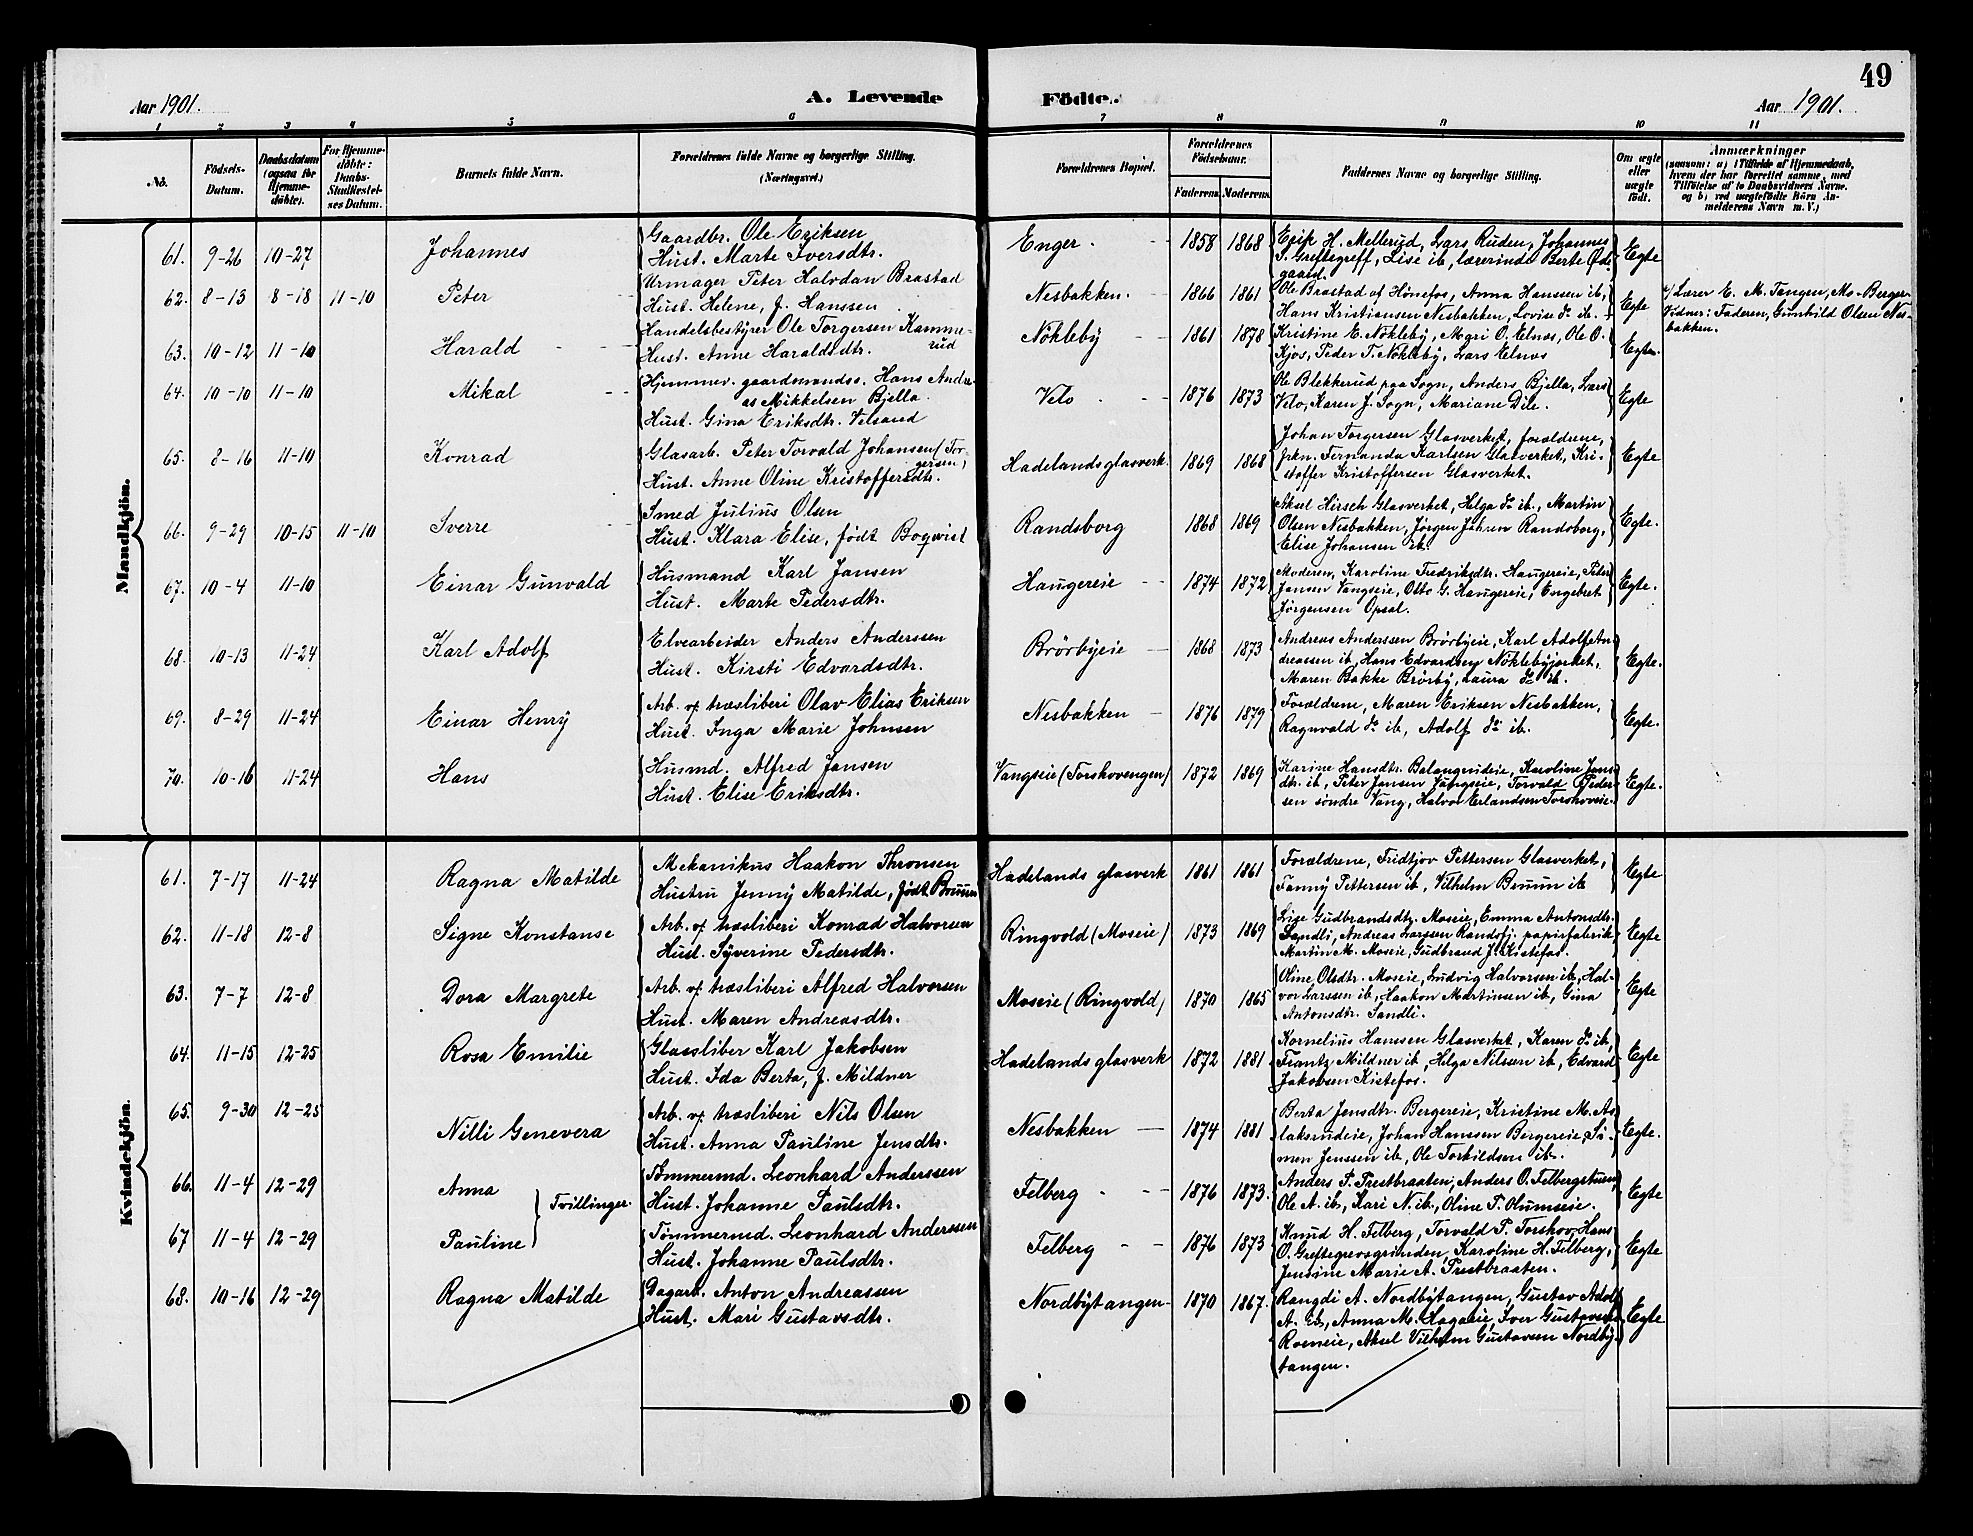 49
Aar 1901.
A. Levende
Födte.
Aar 1901.
1 2 3 4 5 6 7 8 9 10 11
No.
Födsels-Datum.
Daabsdatum (ogsaa for Hjemme-döbte).
For Hjemme-döbte: Daabs-Stadfæstel-ses Datum.
Barnets fulde Navn.
Forældrenes fulde Navne og borgerlige Stilling. (Næringsvei.)
Forældrenes Bopæl.
Forældrenes Födselsaar.
Faderens. Moderens.
Faddernes Navne og borgerlige Stilling.
Om ægte eller uægte födt.
Anmærkninger
(saasom: a) i Tilfælde af Hjemmedaab, hvem der har forrettet samme, med Tilföielse af to Daabsvidners Navne. og b) ved uægtefödte Börn Anmelderens Navn m. V.)
Mandkjön.
61. 9-26 10-27 Johannes
Gaardbr. Ole Eriksen
Hust. Marte Iversdtr.
Enger. 1858 1868
Erik H. Mellerud, Lars Ruden, Johannes
P. Greftegreff, Lise ib, lærerinde Berte Øde-
gaard.
Egte
62. 8-13 8-18 11-10 Peter
Urmager Peter Halvdan Brastad
Hust. Helene, f. Hanssen
Nesbakken. 1866 1861
Ole Brastad af Hönefos, Anna Hanssen ib,
Hans Kristiansen Nesbakken, Lovise do ib.
Egte
a/ Lærer E. M. Tangen, Mo-Berger-
Vidner: Faderen, Gunhild Olsen Nes-
bakken.
63. 10-12 11-10 Harald
Handelsbestyrer Ole Torgersen Kamme-
rud
Hust. Anne Haraldsdtr.
Nökleby 1861 1878
Kristine E. Nökleby, Mari O. Elnæs, Ole O.
Kjos, Peder T. Nökleby, Lars Elnæs
Egte.
64. 10-10 11-10 Mikal
Hjemmev. gaardmandss. Hans Andre-
as Mikkelsen Bjella.
Hust. Gina Eriksdtr. Velsand
Velo 1876 1873
Ole Blekkerud paa Sogn, Anders Bjella, Lars
Velo, Karen J. Sogn, Mariane Dile.
Egte
65. 8-16 11-10 Konrad
Glasarb. Peter Torvald Johansen (Tor-
gersen)
Hust. Anne Oline Kristoffersdtr.
Hadelands glasverk. 1869 1868
Johan Torgersen Glasverket, forældrene,
frkn. Fernanda Karlsen Glasverket, Kri-
stoffer Kristoffersen Glasverket.
Egte
66. 9-29 10-15 11-10 Sverre
Smed Julius Olsen
Hust. Klara Elise, født Boqvist
Randsborg 1868 1869
Aksel Hirsch Glasverket, Helga do ib., Martin
Olsen Nesbakken, Jörgen Jahren Randsborg,
Elise Johansen ib.
Egte.
67. 10-4 11-10 Einar Gunvald
Husmand Karl Jansen
Hust. Marte Pedersdtr.
Haugereie 1874 1872
Moderen, Karoline Fredriksdtr. Haugereie, Peter
Jansen Vangseie, Otto G. Haugereie, Engebret
Jørgensen Opsal.
Egte.
68. 10-13 11-24 Karl Adolf
Elvearbeider Anders Anderssen
Hust. Kirsti Edvardsdtr.
Brörbyeie 1868 1873
Andreas Anderssen Brörbyeie, Karl Adolf An-
dreassen ib, Hans Edvardsen Nöklebyjerket,
Maren Bakke Brörby, Laura do ib.
Egte.
69. 8-29 11-24 Einar Henry
Arb. v/ træsliberi Olav Elias Eriksen
Hust. Inga Marie Johnsen
Nesbakken 1876 1879
Forældrene, Maren Eriksen Nesbakken,
Ragnvald do ib, Adolf do ib.
Egte.
70. 10-16 11-24 Hans
Husmd. Alfred Jansen
Hust. Elise Eriksdtr.
Vangseie (Torshovengen) 1872 1869
Karine Hansdtr. Balangrudeie, Karoline Jans-
dtr. ib, Peter Jansen Vangseie, Torvald Peder-
sen söndre Vang, Halvor Erlandsen Torshoveie.
Egte.
Kvindekjön.
61. 7-17 11-24 Ragna Matilde
Mekanikus Haakon Thronsen
Hustru Jenny Matilde, født Bruun
Hadelands glasverk 1861 1861
Forældrene, Fridtjov Pettersen Glasverket,
Fanny Pettersen ib, Vilhelm Bruun ib
Egte
62. 11-18 12-8 Signe Konstanse
Arb. v/ træsliberi Konrad Halvorsen
Hust. Syverine Pedersdtr.
Ringvold (Moseie) 1873 1869
Lise Gudbrandsdtr. Moseie, Emma Antonsdtr.
Sandli, Andreas Larssen Randsfj. papirfabrik,
Martin M. Moseie, Gudbrand J. Kistefos.
Egte
63. 7-7 12-8 Dora Margrete
Arb. v/ træsliberi Alfred Halvorsen
Hust. Maren Andreasdtr.
Moseie (Ringvold) 1870 1865
Oline Olsdtr. Moseie, Ludvig Halvorsen ib, Hal-
vor Larssen ib, Haakon Martinsen ib, Gina
Antonsdtr. Sandli.
Egte
64. 11-15 12-25 Rosa Emilie
Glassliber Karl Jakobsen
Hust. Ida Berta, f. Mildner
Hadelands glasverk 1872 1881
Kornelius Hanssen Glasverket, Karen do ib,
Frantz Mildner ib, Helga Nilsen ib, Edvard
Jakobsen Kistefos.
Egte
65. 9-30 12-25 Nilli Genevera
Arb. v/ træsliberi Nils Olsen
Hust. Anna Pauline Jensdtr.
Nesbakken 1874 1881
Berta Jensdtr. Bergereie, Kristine M. As-
laksrudeie, Johan Hanssen Bergereie, Si-
men Jenssen ib, Ole Torkildsen ib.
Egte.
66. 11-4 12-29 Anna
Tvillinger
Tømmermd. Leonhard Anderssen
Hust. Johanne Paulsdtr.
Felberg 1876 1873.
Anders P. Prestbraaten, Anders O. Felbergstuen,
Ole A. ib, Kari N. ib, Oline P. Olumseie.
Egte
67 11-4 12-29 Pauline
Tømmermd. Leonhard Anderssen
Hust. Johanne Paulsdtr.
Felberg 1876 1873
Knud H. Felberg, Torvald P. Torshov, Hans
O. Greftegrevsgrinden, Karoline H. Felberg,
Jensine Marie A. Prestbraaten.
Egte
68. 10-16 12-29 Ragna Matilde
Dagarb. Anton Andreassen
Hust. Mari Gustavsdtr.
Nordbytangen 1870 1867.
Rangdi A. Nordbytangen, Gustav Adolf
A. ib, Anna M. Hagaeie, Iver Gustavsen
Roeneie, Aksel Vilhelm Gustavsen Nordby-
tangen.
Egte